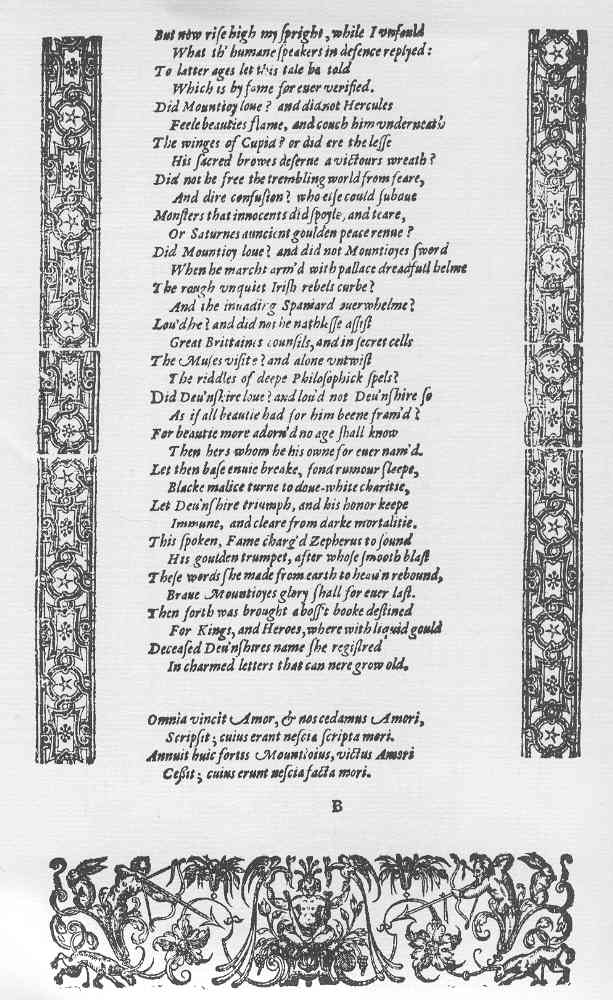 But now rise high my spright, while I unfould
What th' humane speakers in defence replyed:
To latter ages let this tale be told
Which is by fame for ever verified.
Did Mountioy loue? and did not Hercules
Feele beauties flame, and couch him vnderneath
The winges of Cupid? or did ere the lesse
His sacred browes deserue a victours wreath?
Did not he free the trembling world from feare,
And dire confusion? who else could subdue
Monsters that innocents did spoyle, and teare,
Or Saturnes auncient goulden peace renue?
Did Mountioy loue? and did not Mountioyes sword
When he marcht arm'd with pallace dreadfull helme
The rough vnquiet Irish rebels curbe?
And the inuading Spaniard ouerwhelme?
Lou'd he? and did not he nathlesse assist
Great Brittaines counsils, and in secret cells
The Muses visite? and alone vntwist
The riddles of deepe Philosophick spels?
Did Deu'nshire loue? and lou'd not Deu'nshire so
As if all beautie had for him beene fram'd?
For beautie more adorn'd no age shall know
Then hers whom he his owne for euer nam'd.
Let then base enuie breake, fond rumour sleepe,
Blacke malice turne to doue-white charitie,
Let Deu'nshire triumph, and his honor keepe
Immune, and cleare from darke mortalitie.
This spoken, Fame charg'd Zepherus to sound
His goulden trumpet, after whose smooth blast
These words she made from earth to heau'n rebound,
Braue Mountioyes glory shall for euer last.
Then forth was brought a bosst booke destined
For Kings, and Heroes, where with liquid gould
Deceased Deu'nshires name she registred
In charmed letters that can nere grow old.
Omnia vincit Amor, & nos cedamus Amori,
Scripsit; cuius erant nescia scripta mori.
Annuit huic fortis Mountioius, victus Amori
Cessit; cuius erunt nescia facta mori.
B